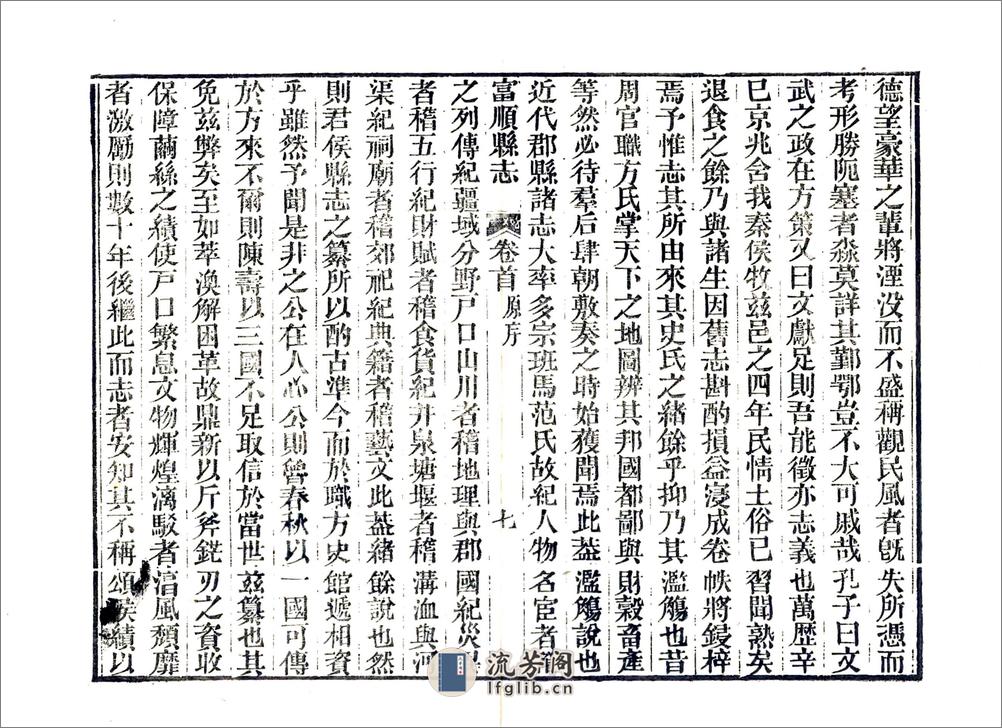 德望豪華之輩將湮没而不盛稱觀民風者旣失所憑而
考形勝阨塞者淼莫詳其鄞鄂豈不大可戚哉孔子曰文
武之政在方策又曰文獻足則吾能徵亦志義也萬歷辛
巳京兆舍我秦侯牧兹邑之四年民情土俗已習聞熟矣
退食之餘乃與諸生因舊志斟酌損益寖成卷帙將鋟梓
焉予惟志其所由來其史氏之緒餘乎抑乃其濫觴也昔
周官職方氏掌天下之地圖辨其邦國都鄙與財穀畜產
等然必待羣后肆朝敷奏之時始獲聞焉此葢濫觴說也
近代郡縣諸志大率多宗班馬范氏故紀人物名宦者
富順縣志 卷首 原序 七
之列傳紀疆域分野戸口山川者稽地理與郡國紀災
者稽五行紀財賦者稽食貨紀井泉塘堰者稽溝洫與河
渠紀祠廟者稽郊祀紀典籍者稽藝文此葢緒餘說也然
則君侯縣志之纂所以酌古準今而於職方史館遞相資
乎雖然予聞是非之公在人心公則魯春秋以一國可傳
於方來不爾則陳壽以三國不足取信於當世兹纂也其
免兹弊矣至如萃渙解困革故鼎新以斤斧銋刃之資收
保障繭絲之績使戸口繁息文物輝煌漓駁者湻風頽靡
者激厲則數十年後繼此而志者安知其不稱頌侯績以
流芳閣
lfglib.cn